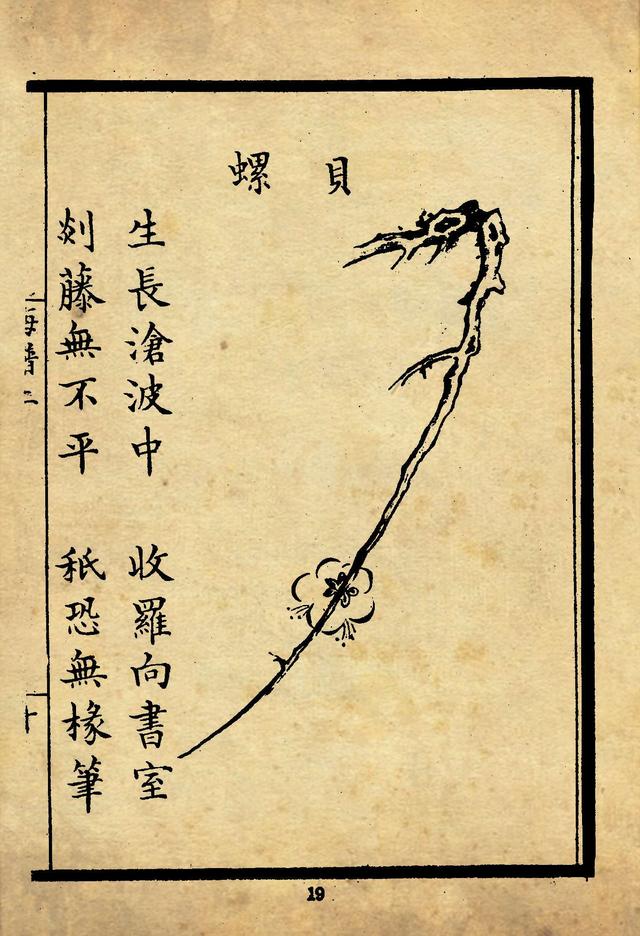 貝螺
生長滄波中 收羅向書室
剡藤無不平 秖恐無椽筆
19